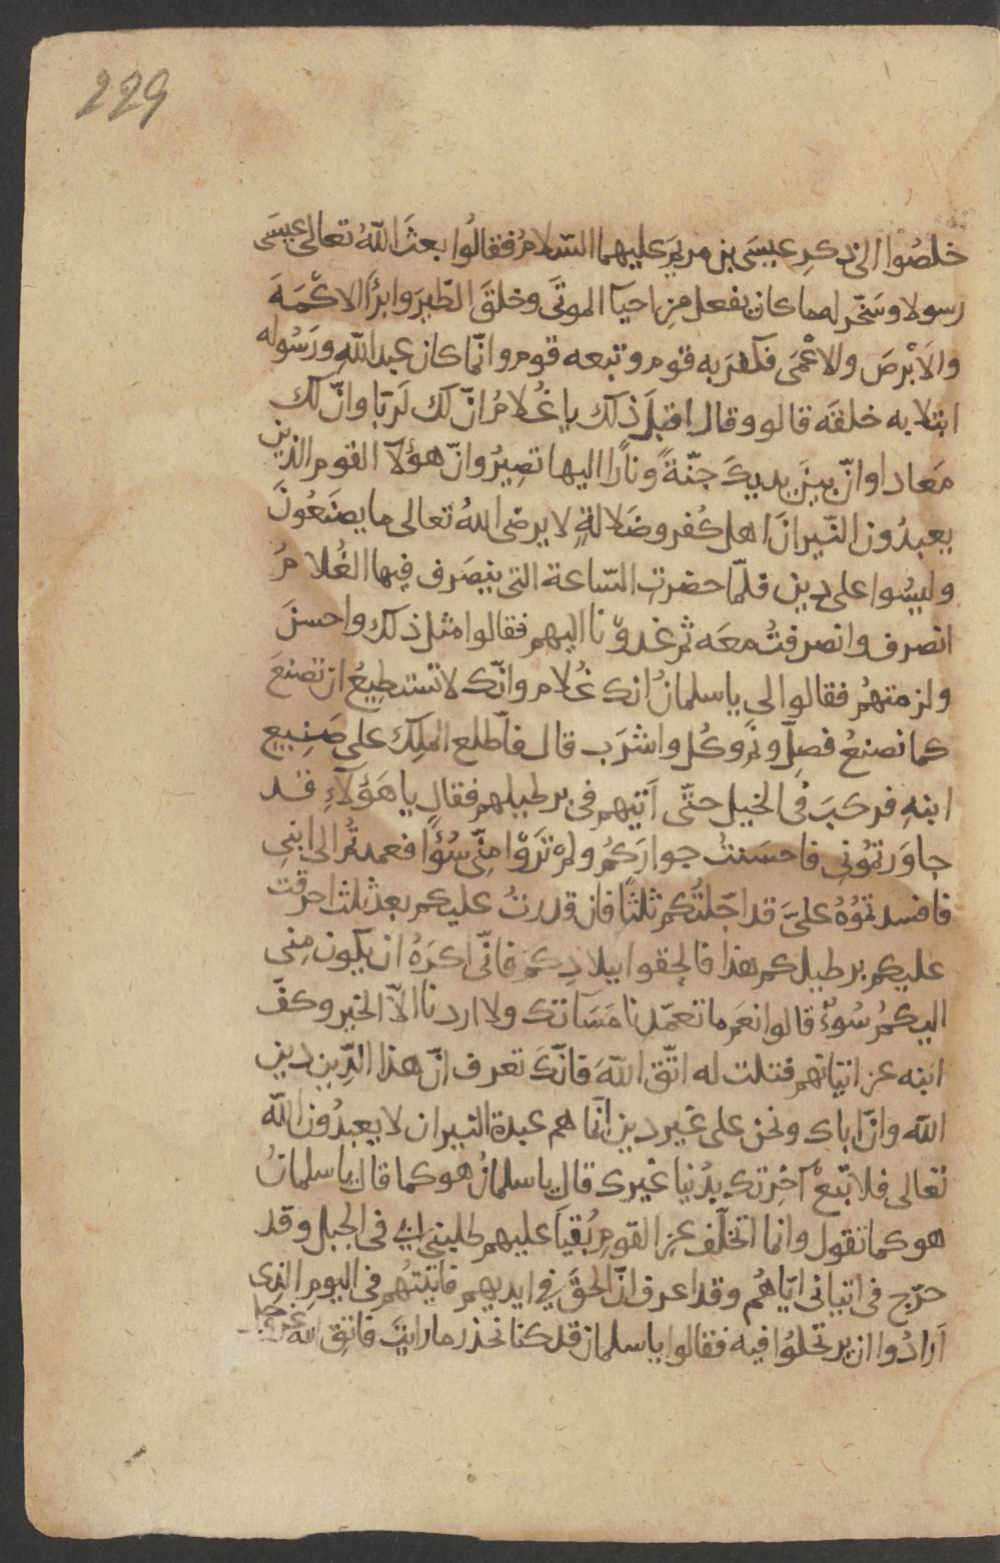 229
خلصُوا الى ذكرِ عيسَى بن مريمَ عليهما السّلامُ فقالُوا بعثَ اللّهُ تعالى عيسَى
رسولا وسَخّر له ما كان يفعل مِن احياَ الموتَى وخلقَ الطّيرَ وابرَأ الاكْمَهَ
والاَبْرصَ والاعْمَى فكفرَ به قوم وتبعه قوم وانّما كان عبد اللّهِ ورَسُوله
ابتلا به خلقَه قالو وقال قبلَ ذلك يا غُلامُ انّ لك لَربّا وانّ لك
مَعادا وانّ بينَ يديكَ جنّةً ونارًا اليها تصِيرُ وانّ هؤلآ القوم الذين
يعبدُون النّيرانَ اهل كُفر وضَلالةٍ لا يرضى اللهُ تعالى ما يصنَعُونَ
وليسُوا على دين فلمّا حضرتِ السّاعة التى ينصَرف فيها الغُلامُ
انصرف وانصرفتُ معَه ثم غدوْنا اليهم فقالوا مثل ذلك واحسنَ
ولزمتهُم فقالوا لى يا سلمانُ انك غُلام وانّك لا تستطيعُ ان تصنعَ
كما نصنعُ فصِلّ ونَم وكُل واشرَب قال فاطّلع الملِك على صَنِيع
ابنهِ فركبَ فى الخيل حتّى اَتيهم فى برطيلهم فقال يا هَؤلآءِ قد
جاوَرتمُونى فاحسَنتُ جوارَكُم ولم ترَوْا مِنّى سُؤًا فعمدتُم الى ابنى
فافسدتموُهُ علىَّ قد اجّلتُكم ثلثًا فان قدرتُ عليكم بعدَ ثلث احرقت
عليكم برطيلكم هذا فالحقوا ببلادِكم فانّى اكرَهُ ان يكون مِنى
اليكمُ سُوءٌ قالوا نعَم ما تعمّدنا مَسَاتك ولا اردنا الاّ الخير وكفَّ
ابنه عن اتيانهم فقلت له اتّق اللّهَ فانّكَ تعرف انّ هذا الدِّين دين
اللّه وانّ اباك ونحن على غير دين انّما هم عبدة النيران لا يعبدُون اللّه
تعالى فلا تبعْ آخِرتك بدُنيا غيرك قال يا سلمانُ هو كما قال يا سلمانُ
هو كما تقول وانما اتخلّف عن القوم بُقياَ عليهم طلبنى ابى فى الجبل وقد
خرّج فى اتيانى ايّاهُم وقد اعرف انّ الحقَّ فى ايديهم فاتيتُهم فى اليوم الذى
اَرادُوا ان يرتحلوُا فيه فقالوا يا سلمان قد كنا نحذر ما رايتَ فاتق الله